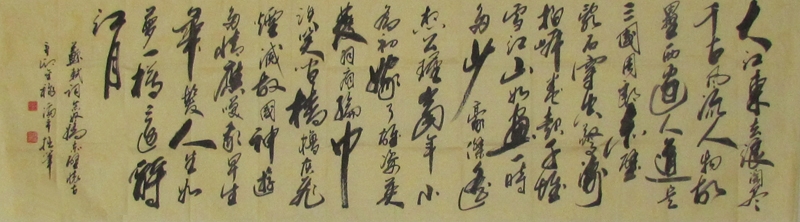 大江東去浪淘盡
千古風流人物故
壘西邊人道是
三國周郎赤壁
亂石穿空驚濤
拍岸卷起千堆
雪江山如畫一時
多少豪傑遙
想公瑾當年小
喬初嫁了雄姿英
發羽扇綸巾
談笑间檣櫓灰飛
煙滅故國神遊
多情應笑我早生
華髮人生如
夢一樽還酹
江月
蘇軾詞赤壁懷古